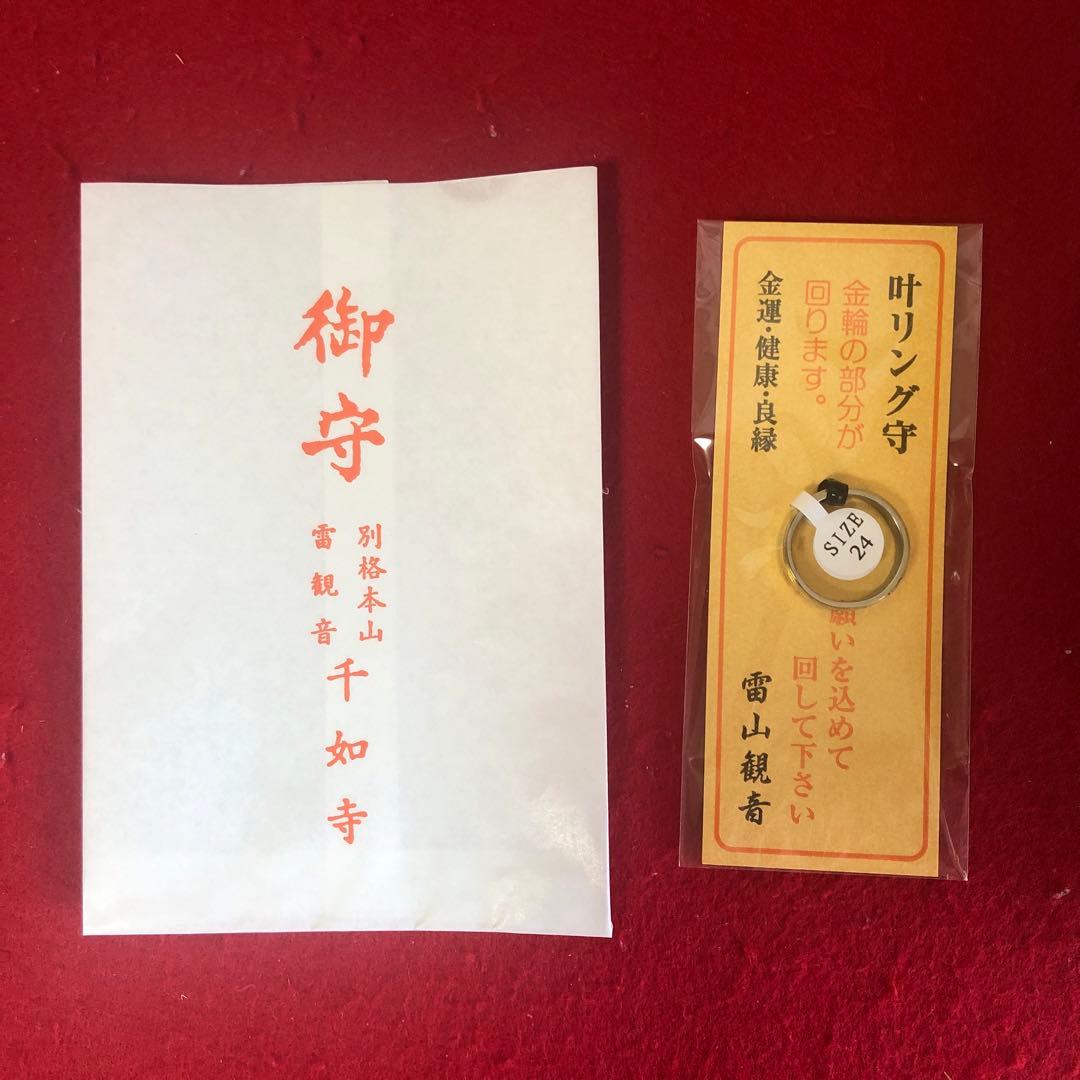 御守
別格本山
雷観音
千如寺
叶リング守
金輪の部分が
回ります。
金運・健康・良縁
SIZE
24
願いを込めて
回して下さい
雷山観音